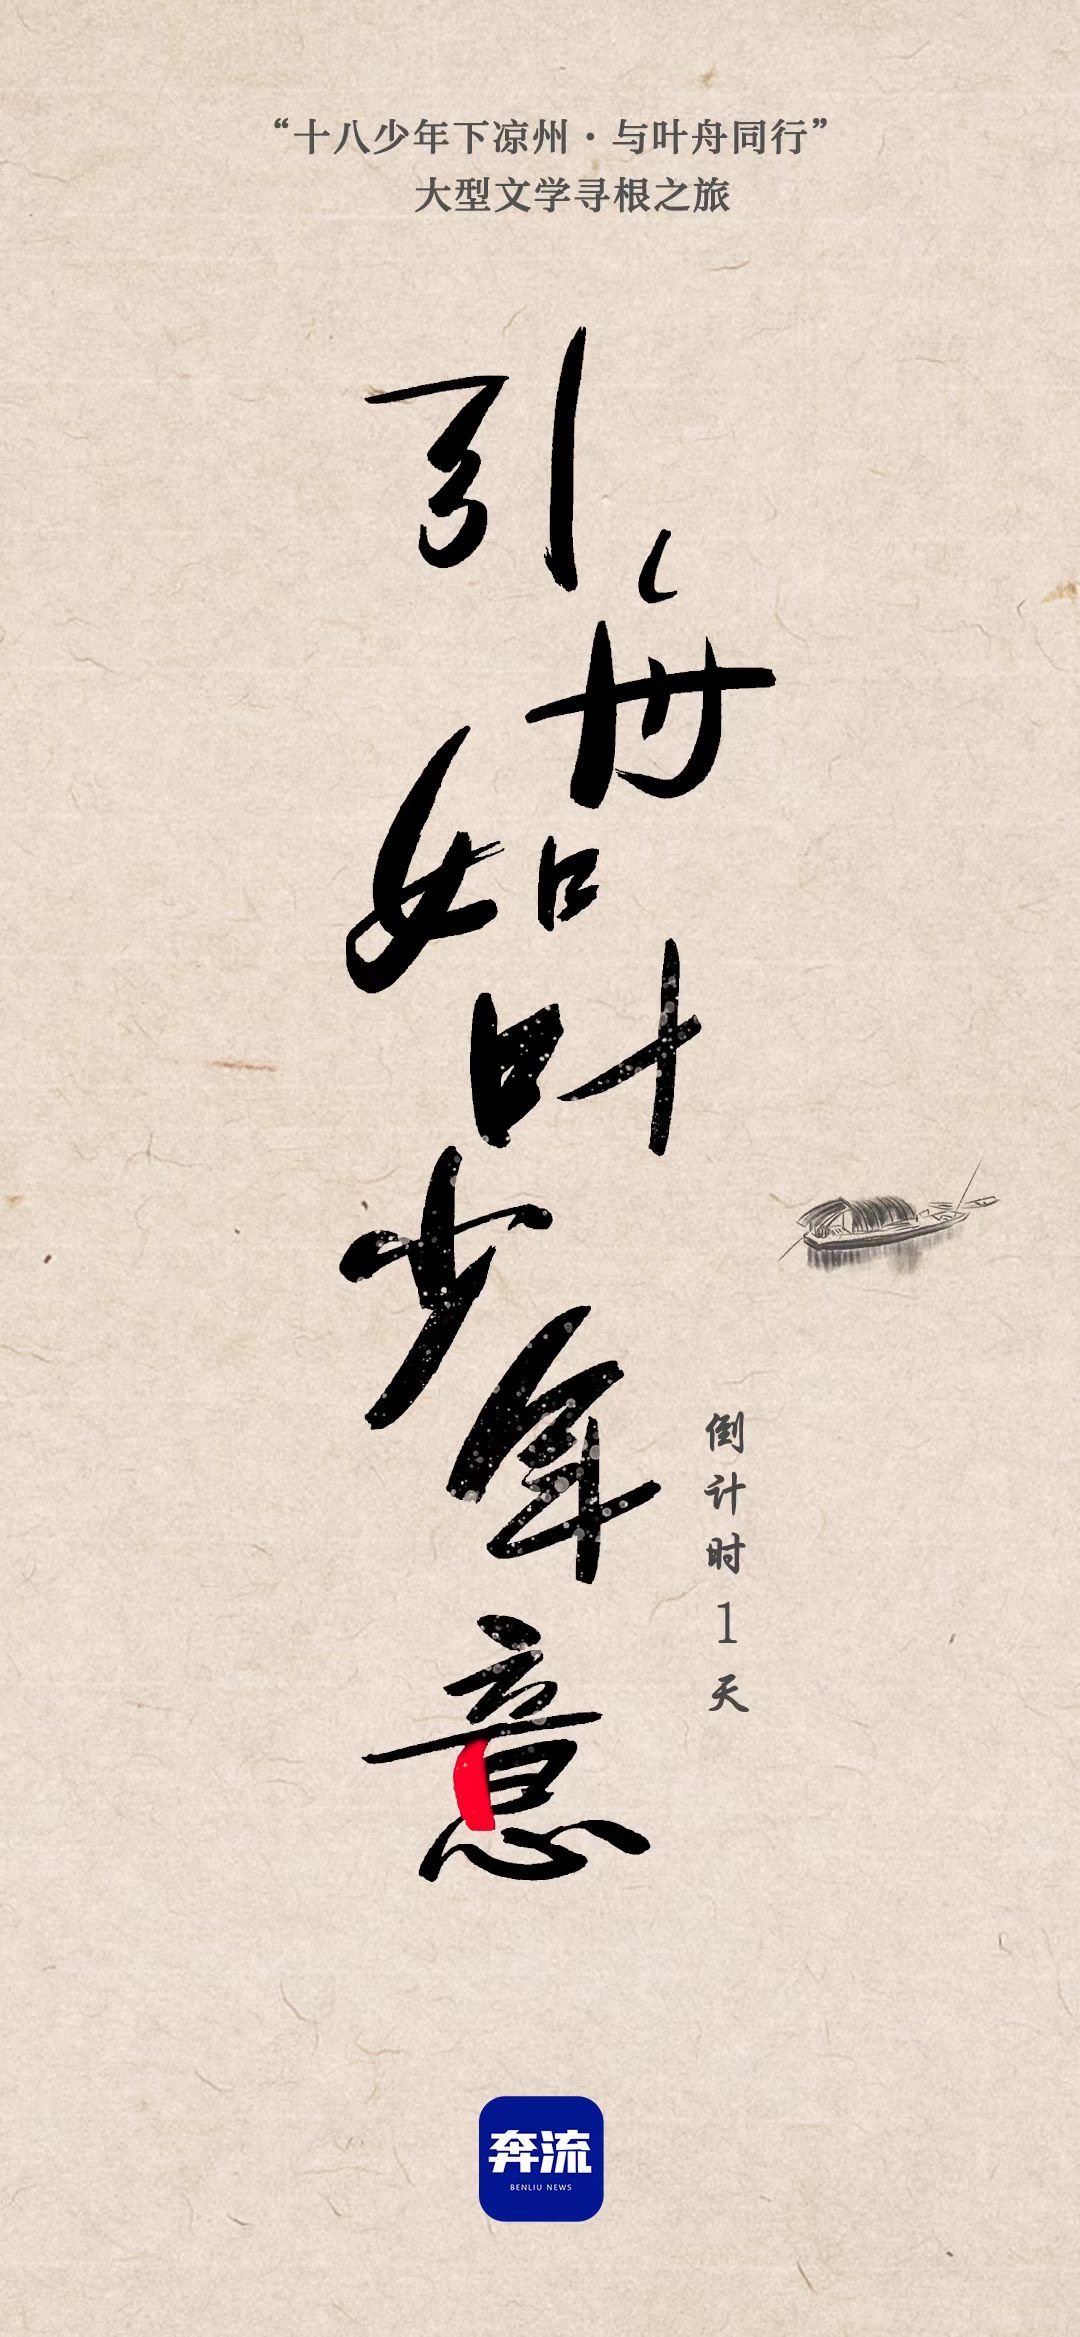 “十八少年下凉州·与叶舟同行”
大型文学寻根之旅
引舟如叶少年意
倒计时1天
奔流
BENLIU NEWS